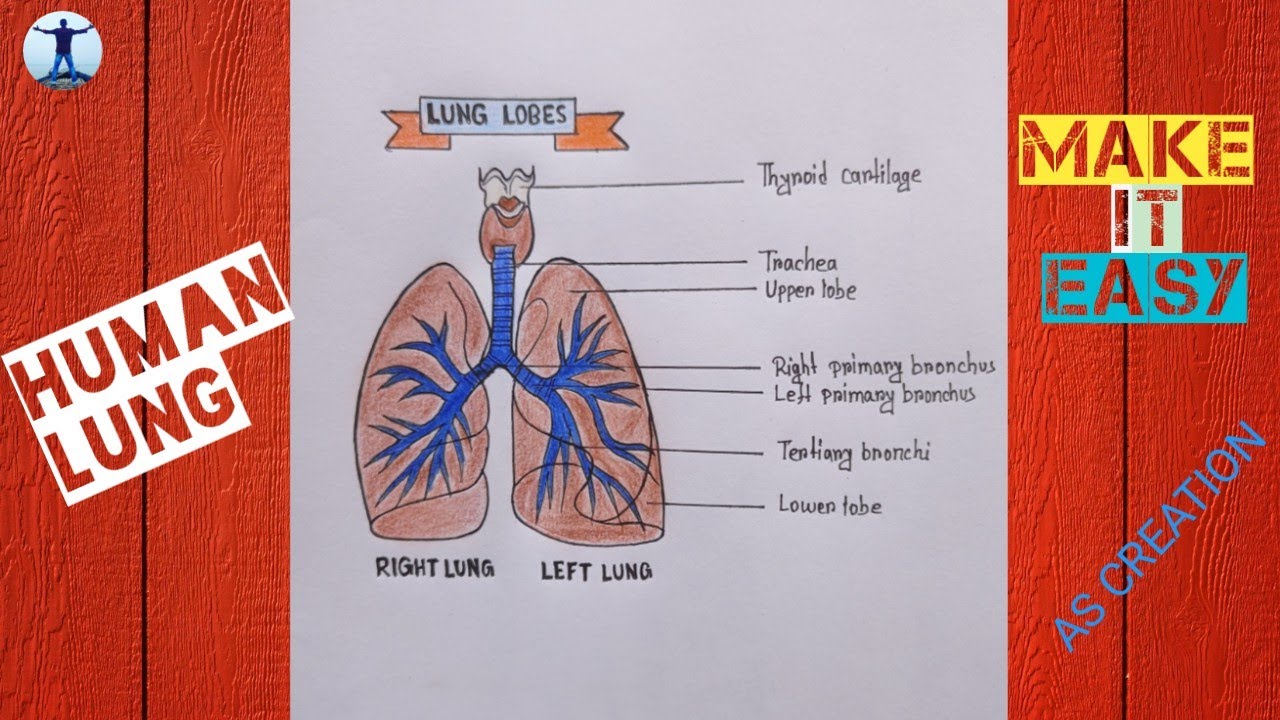 LUNG LOBES
Thynoid cartilage
Trachea
Upper lobe
Right primary bronchus
Left primary bronchus
Tertiary bronchi
Lower lobe
RIGHT LUNG
LEFT LUNG
HUMAN
LUNG
MAKE
IT
EASY
AS CREATION